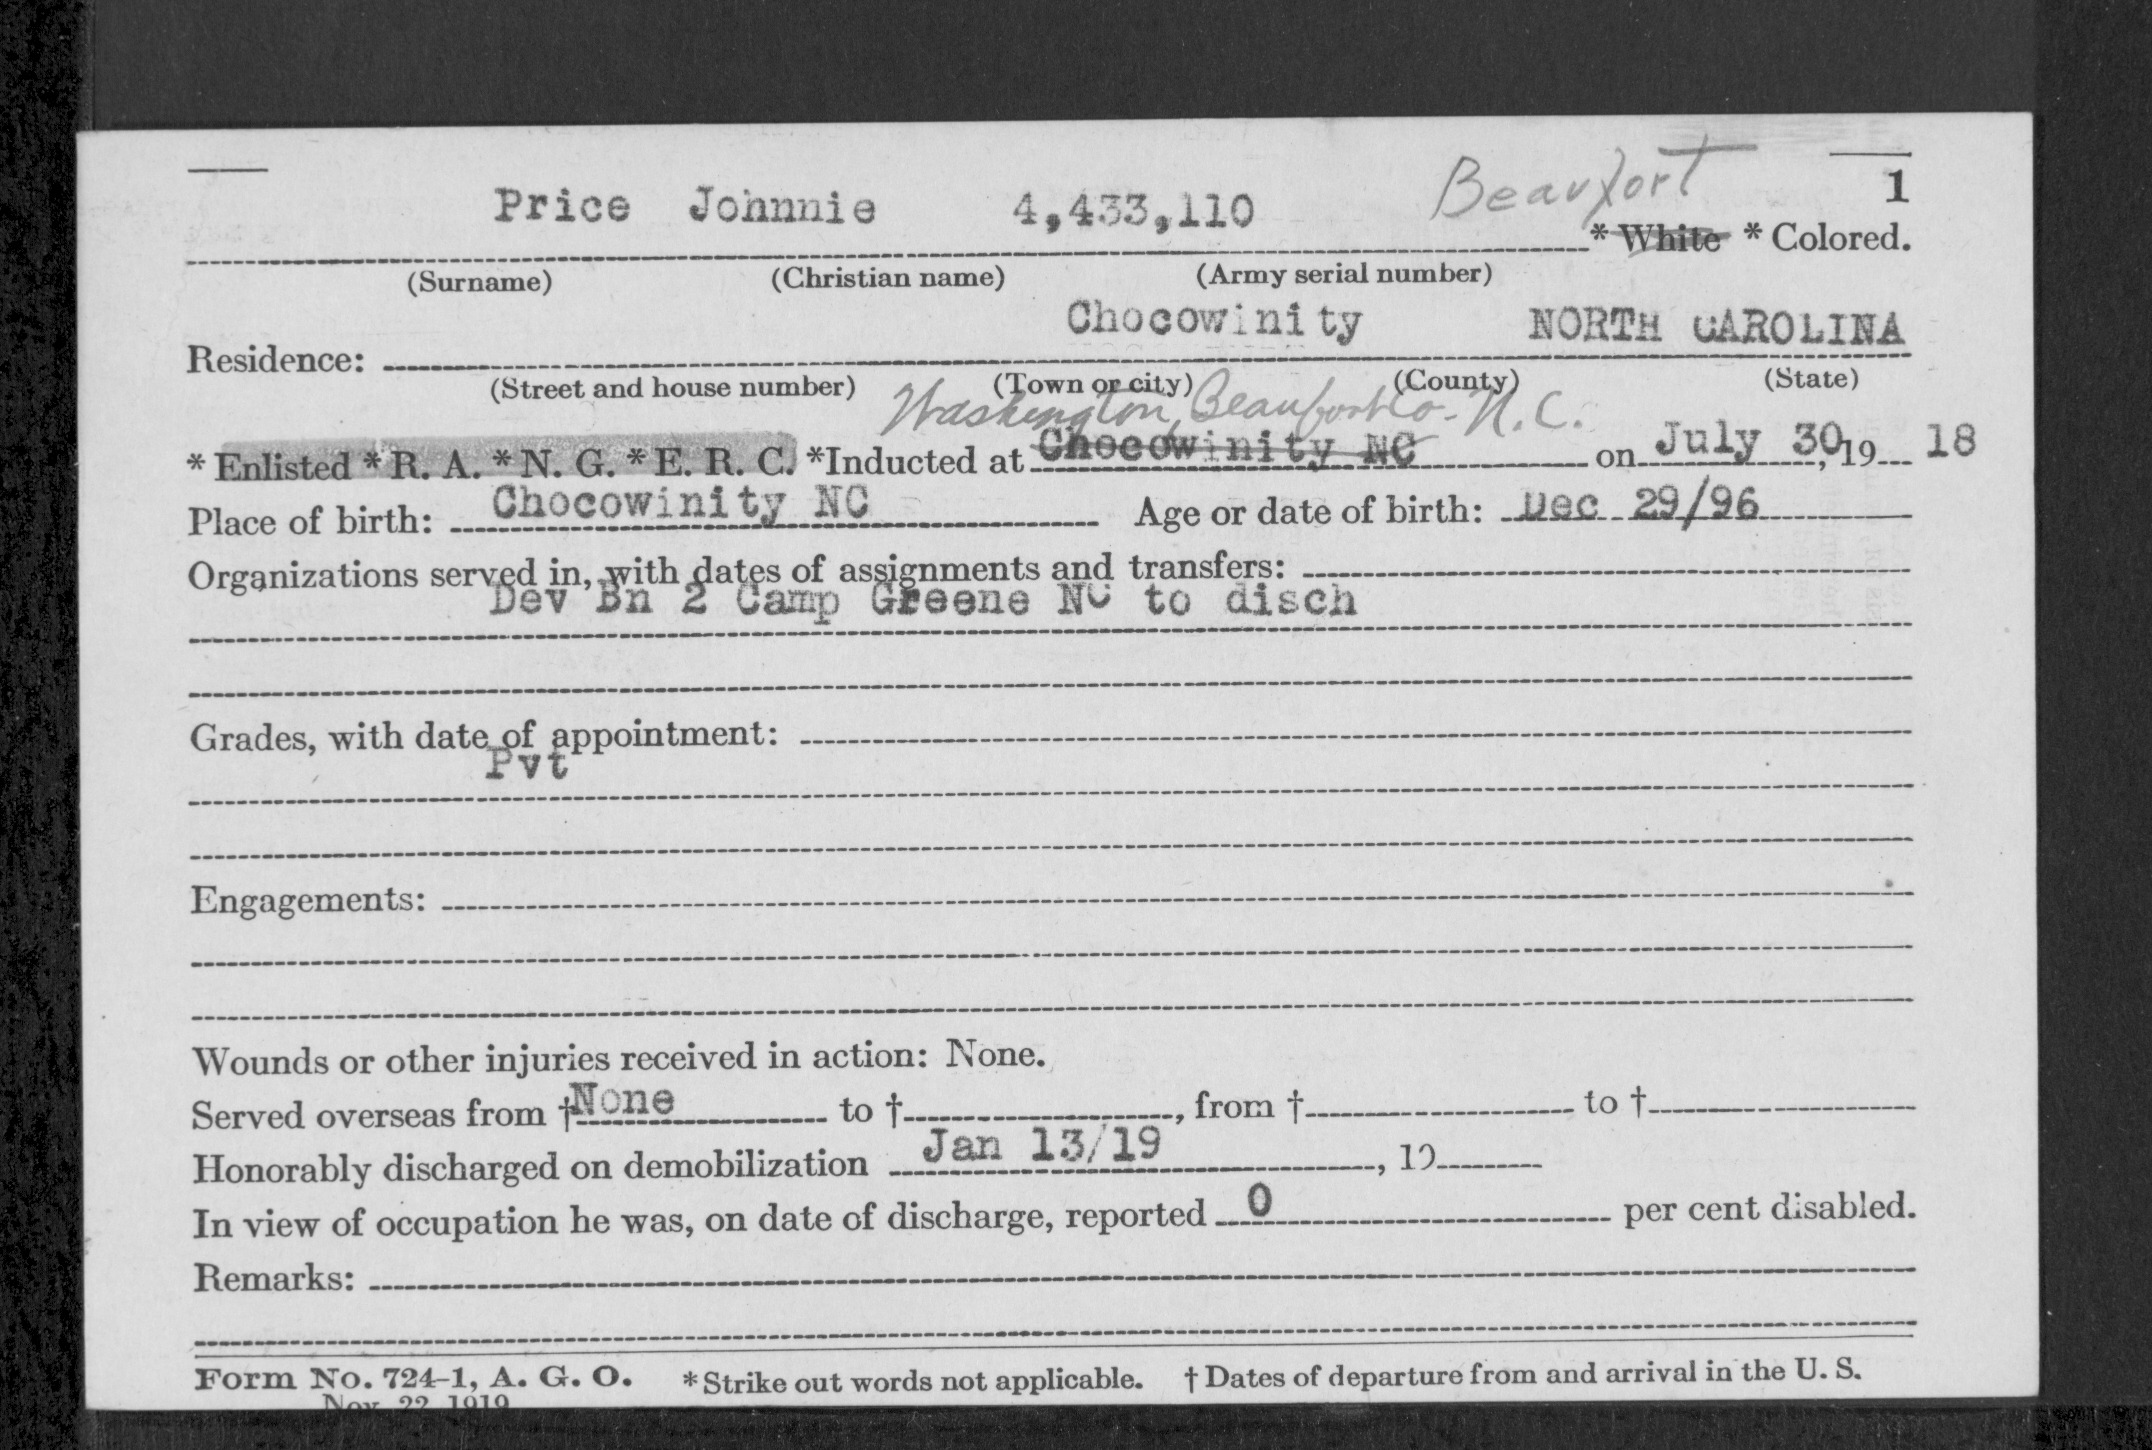 Beaufort
1
Price Johnnie 4,433,110 * White * Colored.
(Surname) (Christian name) (Army serial number)
Chocowinity NORTH CAROLINA
Residence:
(Street and house number) (Town or city) (County) (State)
Washington, Beaufort Co. N.C.
* Enlisted * R. A. * N. G. * E. R. C. *Inducted at Chocowinity NC on July 30, 19 18
Place of birth: Chocowinity NC Age or date of birth: Dec 29/96
Organizations served in, with dates of assignments and transfers:
Dev Bn 2 Camp Greene NC to disch
Grades, with date of appointment:
Pvt
Engagements:
Wounds or other injuries received in action: None.
Served overseas from † None to †, from † to †
Honorably discharged on demobilization Jan 13/19, 19
In view of occupation he was, on date of discharge, reported 0 per cent disabled.
Remarks:
Form No. 724-1, A. G. O. * Strike out words not applicable. † Dates of departure from and arrival in the U. S.
Nov. 22, 1919